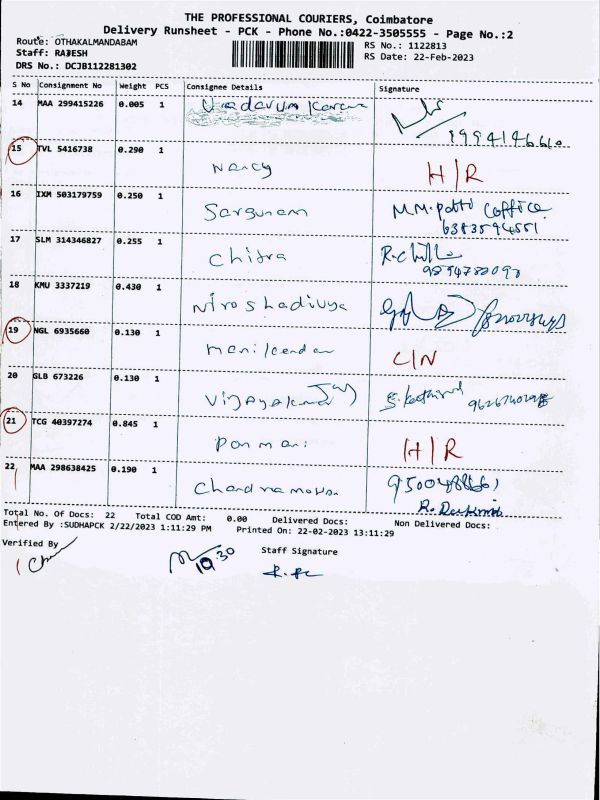 THE PROFESSIONAL COURIERS, Coimbatore
Delivery Runsheet - PCK - Phone No.:0422-3505555 - Page No.:2
Route: OTHAKALMANDABAM
Staff: RAJESH
DRS No.: DCJB112281302
RS No.: 1122813
RS Date: 22-Feb-2023
S No Consignment No Weight PCS Consignee Details Signature
14 MAA 299415226 0.005 1
9994146610
15 TVL 5416738 0.290 1
Nancy H/R
16 IXM 503179759 0.250 1
Sargunam M.M.
17 SLM 314346827 0.255 1
Chitra
18 KMU 3337219 0.430 1
Niroshadivya
19 NGL 6935660 0.130 1
Manikandan C/N
20 GLB 673226 0.130 1
Vijayakumar
21 TCG 40397274 0.845 1
Ponmani H/R
22 MAA 298638425 0.190 1
Chandramohan
Total No. Of Docs: 22 Total COD Amt: 0.00 Delivered Docs: Non Delivered Docs:
Entered By :SUDHAPCK 2/22/2023 1:11:29 PM Printed On: 22-02-2023 13:11:29
Verified By
19.30
Staff Signature